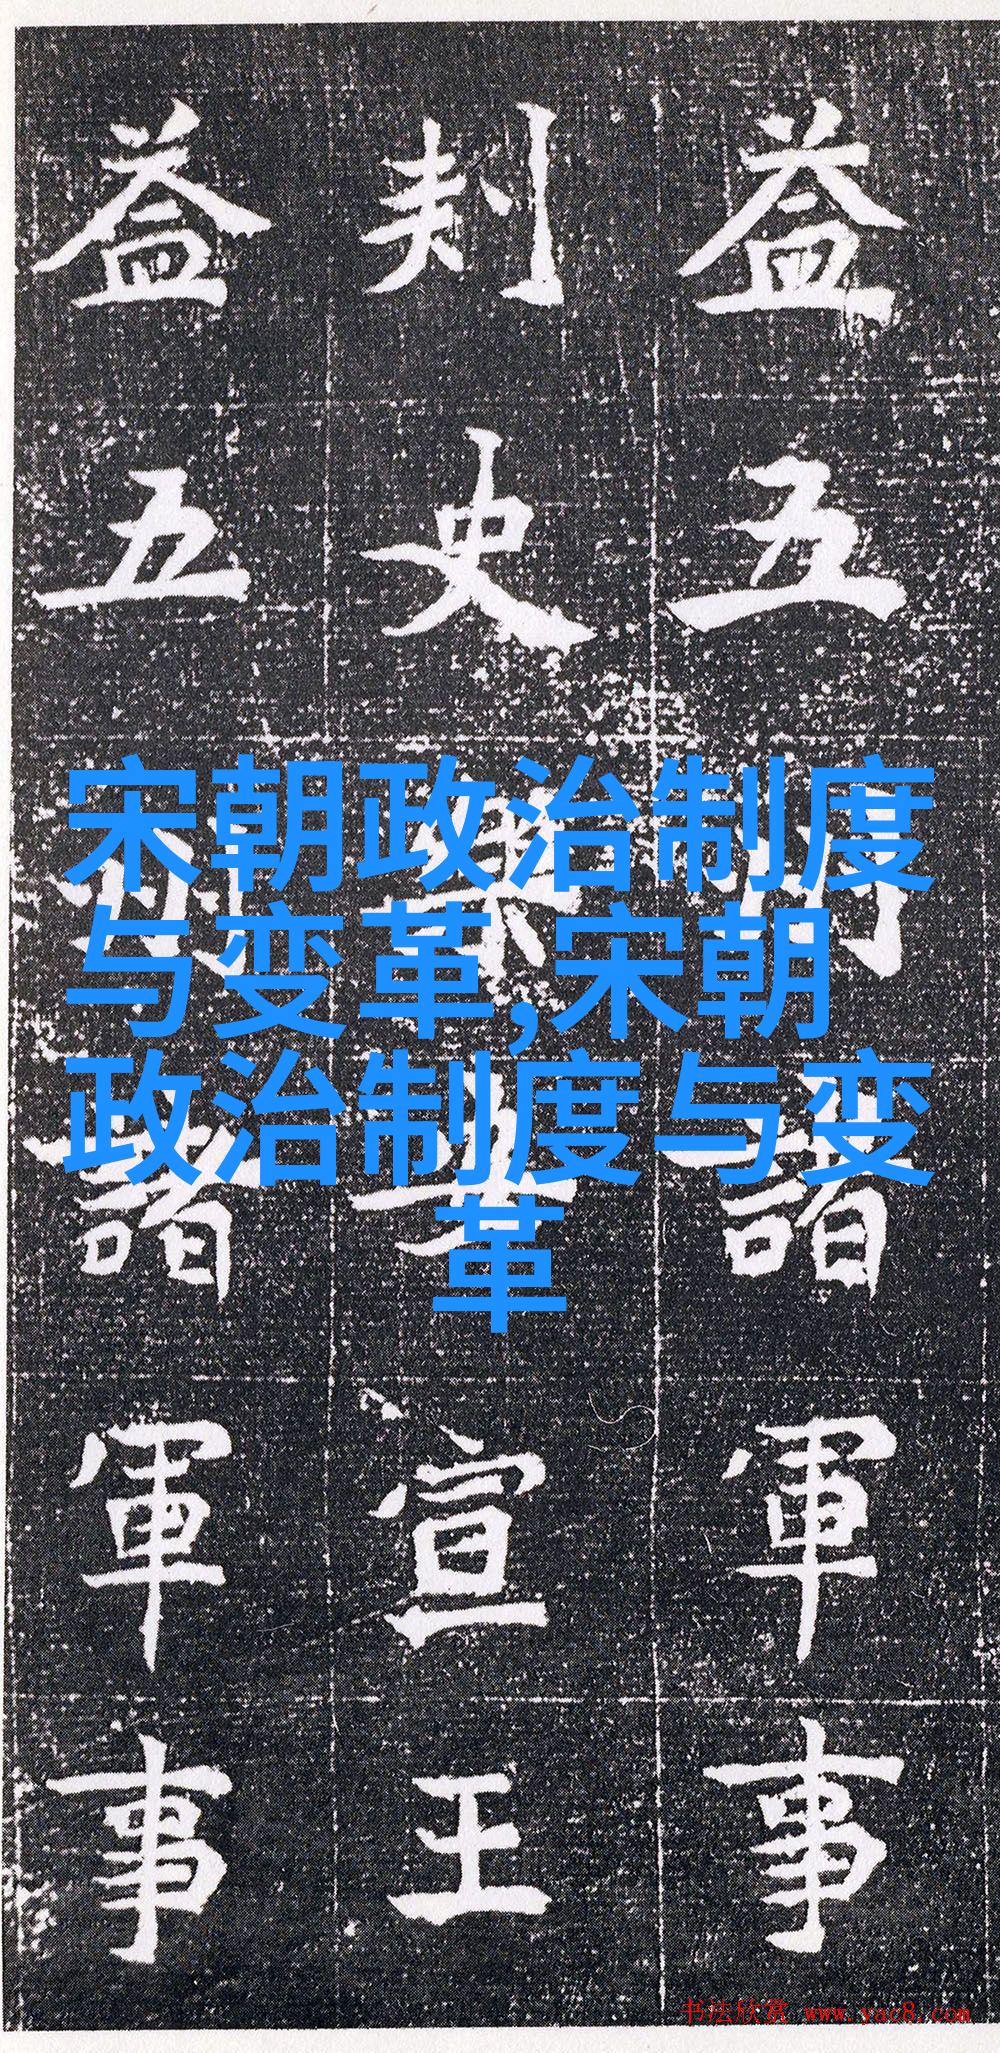 益五州諸軍事
刾史 宣王
益五 諸軍事
宋朝政治制度
与变革,宋朝
政治制度与变
革
书法欣赏 www.yac8.com